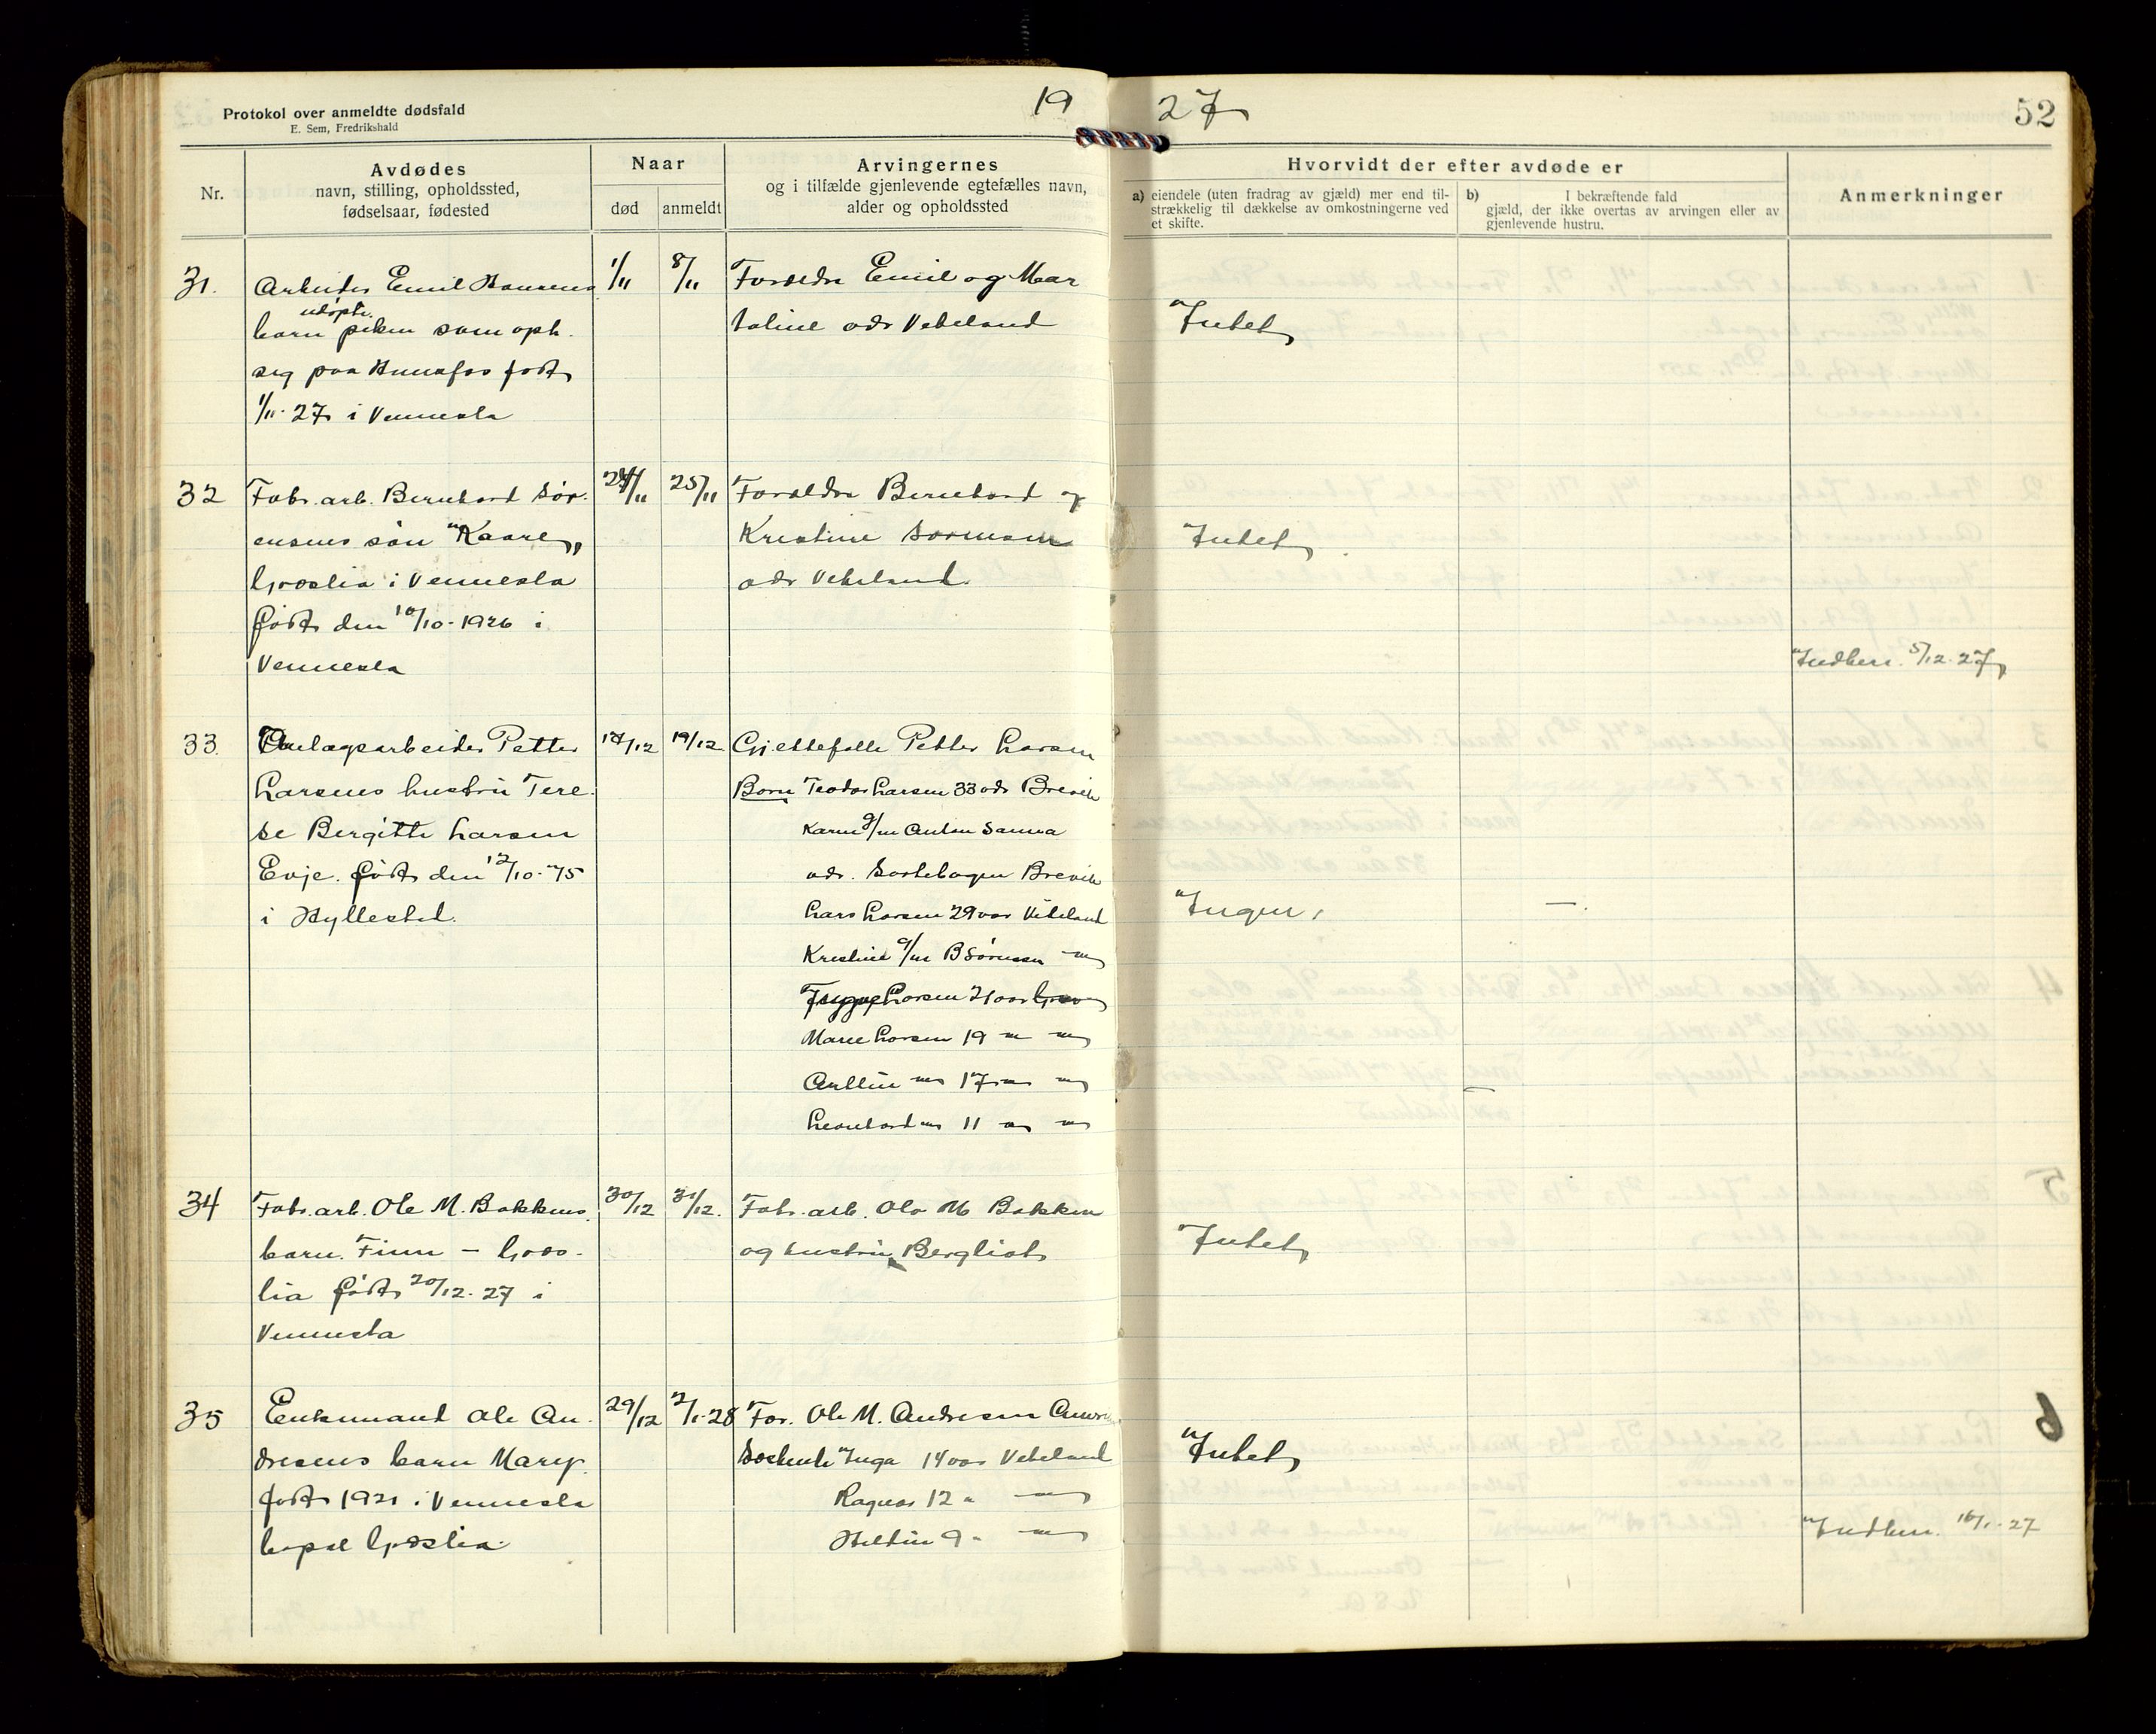 Protokol over anmeldte dødsfald
E. Sem, Fredrikshald
19 27
52
Nr.
Avdødes
navn, stilling, opholdssted,
fødselsaar, fødested
Naar
død
anmeldt
Arvingernes
og i tilfælde gjenlevende egtefælles navn,
alder og opholdssted
Hvorvidt der efter avdøde er
a) eiendele (uten fradrag av gjæld) mer end til-
strækkelig til dækkelse av omkostningerne ved
et skifte.
b) I bekræftende fald
gjæld, der ikke overtas av arvingen eller av
gjenlevende hustru.
Anmerkninger
31.
Arbeider Emil Hansens
udøpte
barn piken som oph.
seg paa Hunsfos født
1/11-27 i Vennesla
1/11
8/11
Foreldre Emil og Mar
taline adr Vikeland
Intet
32
Fabr. arb. Bernhard Sør-
ensens søn "Kaare"
Graslia i Vennesla
født den 10/10-1926 i
Vennesla
24/11
25/11
Foreldre Bernhard og
Kristine Sørensen
adr Vikeland.
Intet
Indber. 5/12-27
33.
Anlægsarbeider Petter
Larsens hustru Tere-
se Bergitte Larsen
Evje. født den 12/10-75
i Hyllestad.
17/12
19/12
Gjettefelle Petter Larsen
Barn Teodor Larsen 33 adr Brevik
Karen g/m Anton Sanna
adr. Sortebogen Brevik
Lars Larsen 29 aar Vikeland
Kristine g/m B Sørensen -"-
Trygge Larsen 21 aar
Marie Larsen 19 -"- -"-
-"- 17 -"- -"-
Leonhard -"- 11 -"- -"-
Ingen
—
34
Fabr. arb. Ole M. Bakkens
barn. Finn - Gras-
lia født 20/12-27 i
Vennesla
30/12
31/12.
Fabr. arb. Ole M Bakken
og hustru Bergliot
Intet
35
Enkemand Ole An-
dresens barn Mary.
født 1921 i Vennesla
Graslia.
29/12
2/1-28
Far. Ole M. Andresen
Søskende Inga 14 aar Vikeland
Ragna 12 " -"-
9 " -"-
Intet
Indber. 16/1-27